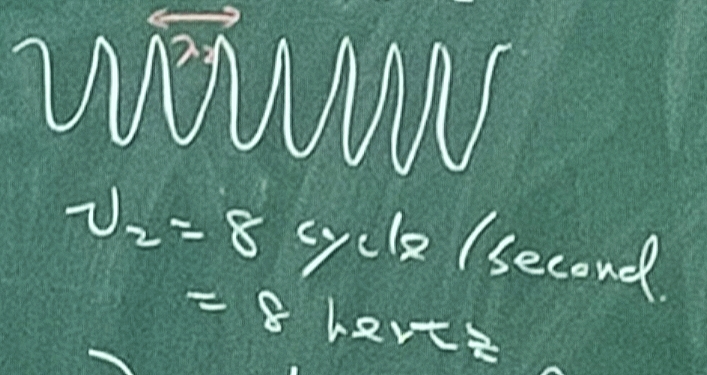 λ₂
ν₂ = 8 cycle / second.
= 8 hertz